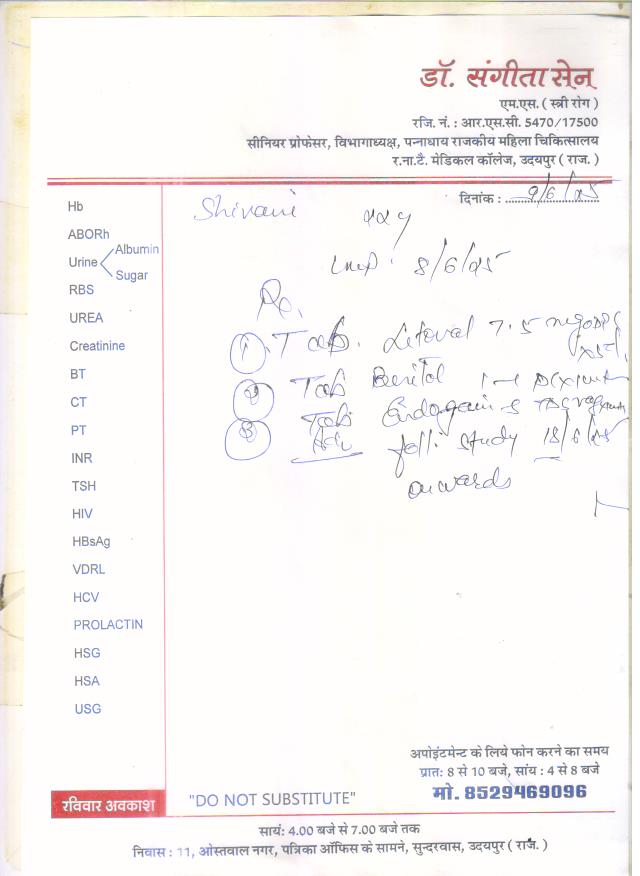 डॉ. संगीता सेन
एम.एस. ( स्त्री रोग )
रजि. नं. : आर.एस.सी. 5470/17500
सीनियर प्रोफेसर, विभागाध्यक्ष, पन्नाधाय राजकीय महिला चिकित्सालय
र.ना.टै. मेडिकल कॉलेज, उदयपुर ( राज. )
दिनांक : 9/6/25
Shivani 22y
LMP: 8/6/25
Rx.
1 Tab. Letoval 7.5 mg
2 Tab
3 Tab
Adv foll: study 18/6/25
onwards
Hb
ABORh
Urine Albumin
Sugar
RBS
UREA
Creatinine
BT
CT
PT
INR
TSH
HIV
HBsAg
VDRL
HCV
PROLACTIN
HSG
HSA
USG
अपोइंटमेन्ट के लिये फोन करने का समय
प्रात: 8 से 10 बजे, सांय : 4 से 8 बजे
मो. 8529469096
रविवार अवकाश "DO NOT SUBSTITUTE"
सायं: 4.00 बजे से 7.00 बजे तक
निवास : 11, ओस्तवाल नगर, पत्रिका ऑफिस के सामने, सुन्दरवास, उदयपुर ( राज. )